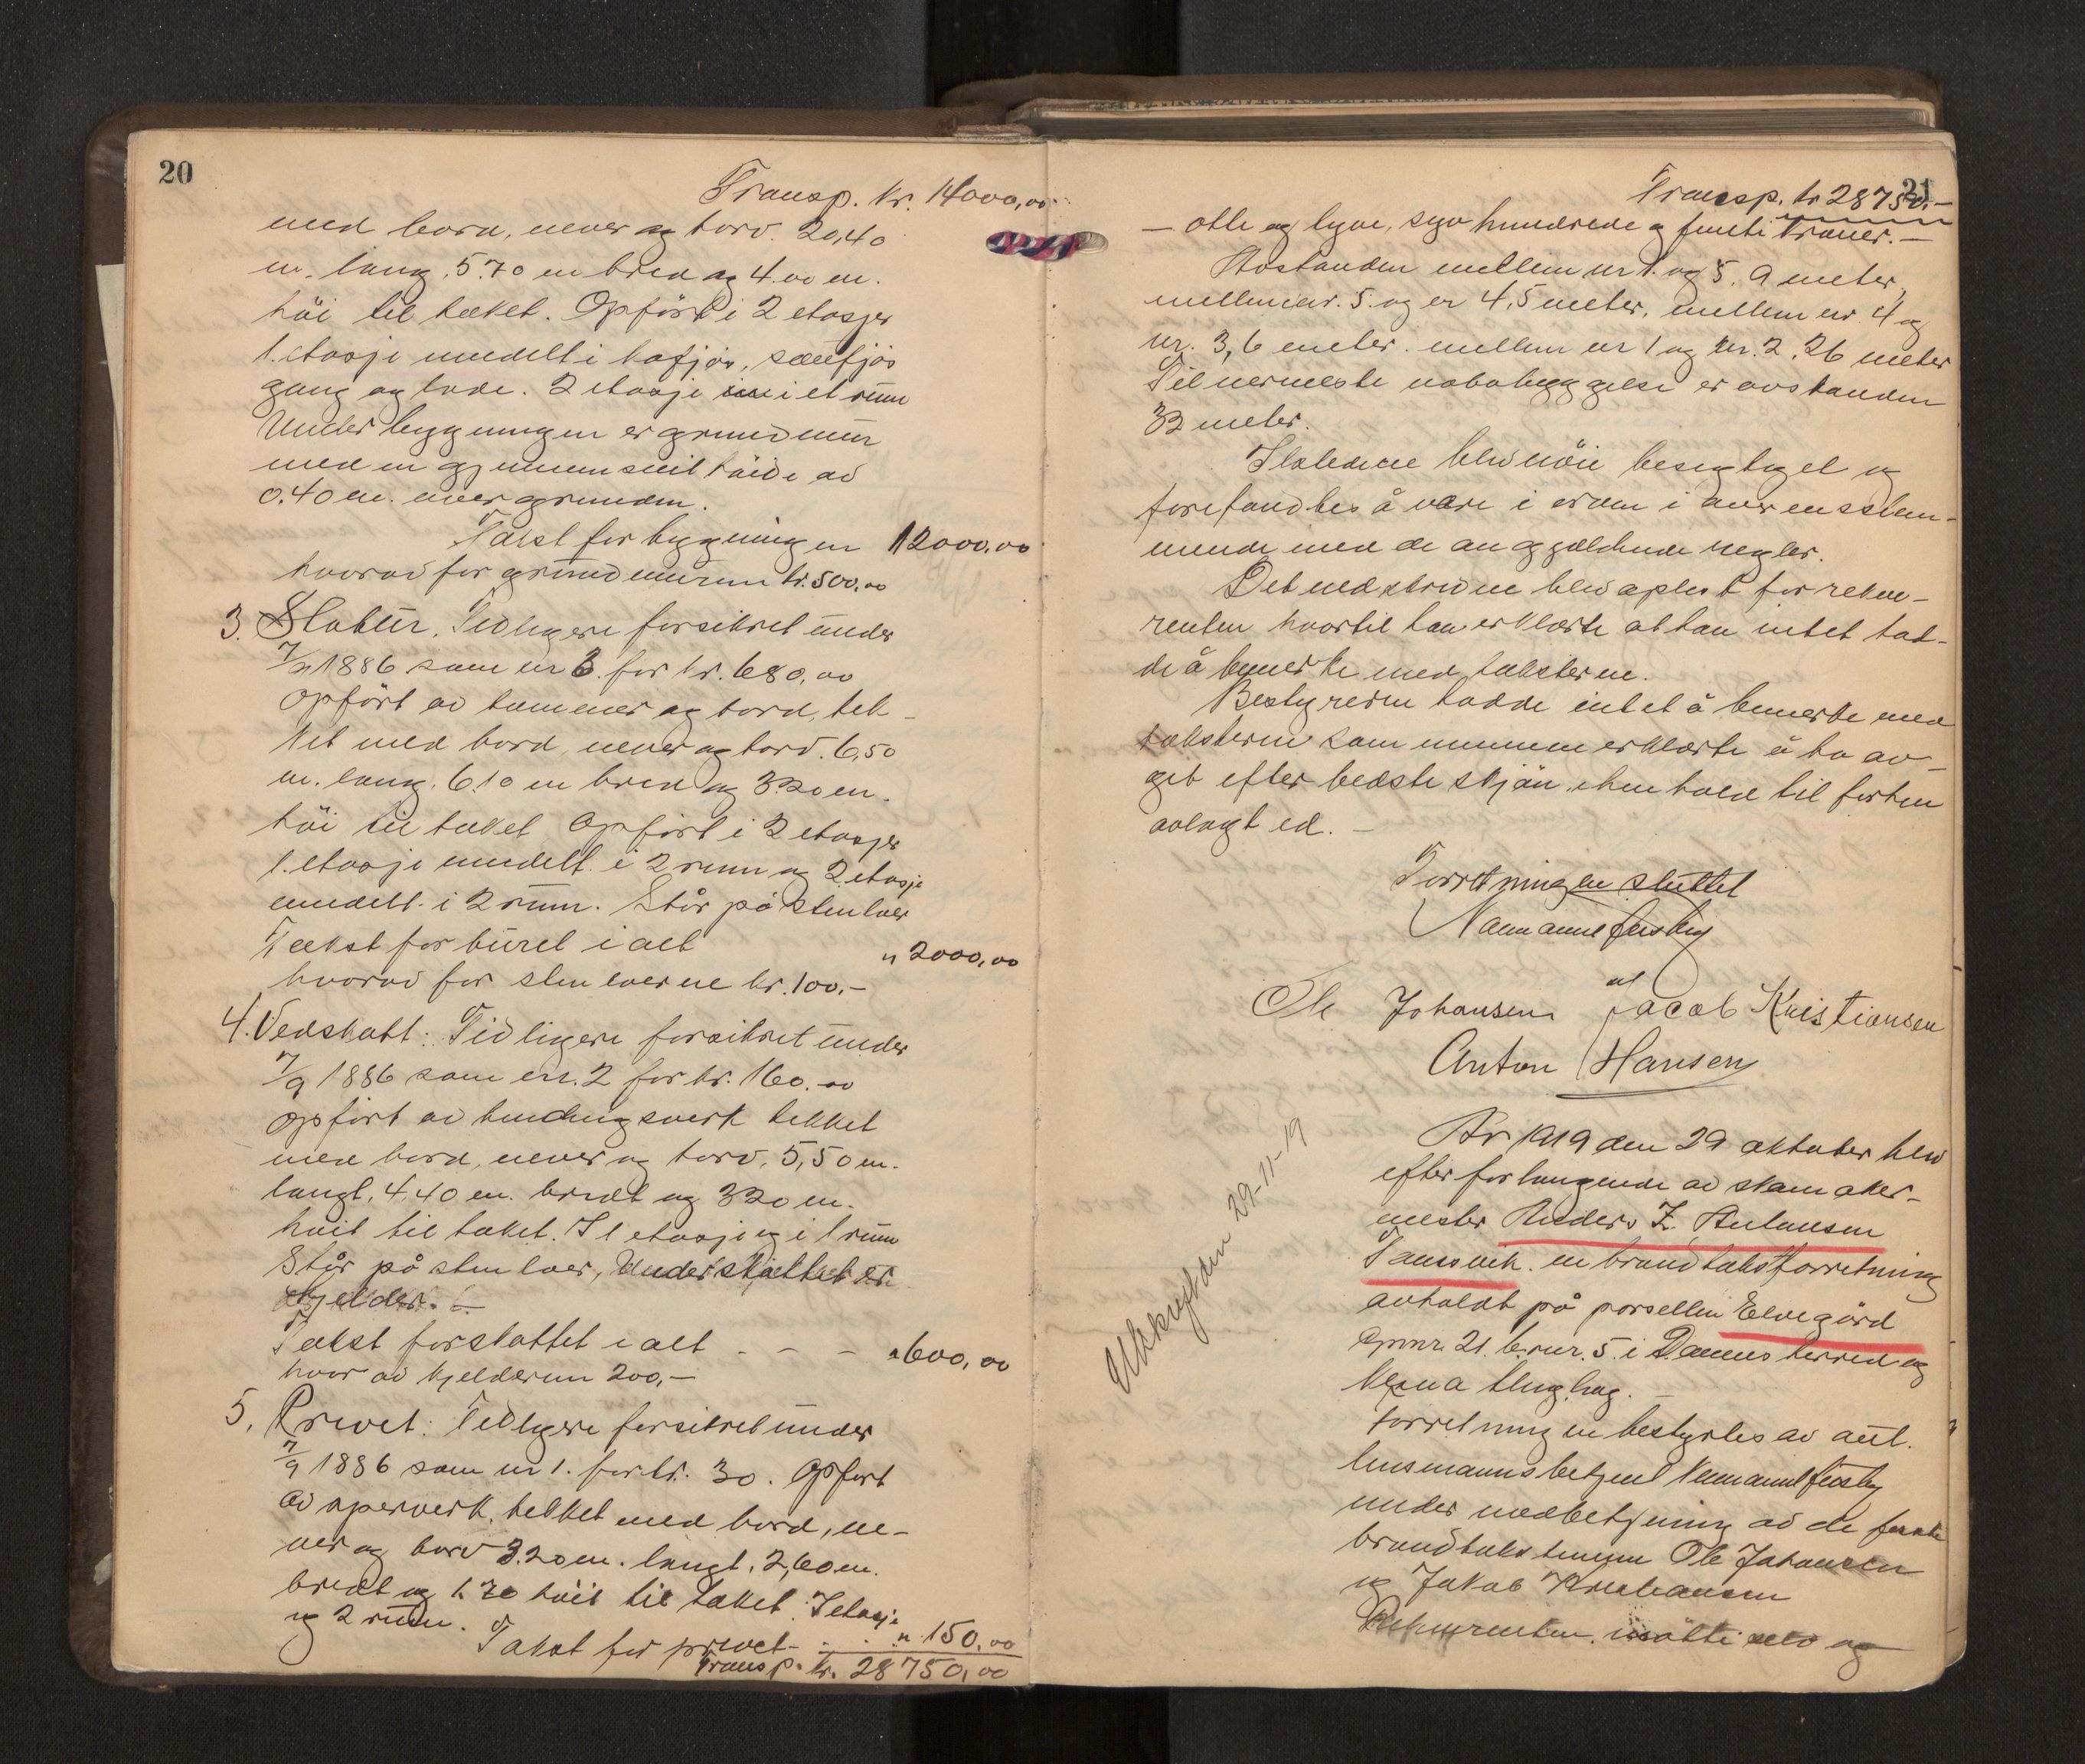 20
Transp. kr. 14000,00
med bord, never og torv. 20,40
m. lang, 5.70 m bred og 4.00 m.
höi til taket. Opfört i 2 etasjer
1. etasje inndelt i kufjös, sauefjös
gang og lade. 2 etasje i et rum
Under bygningen er grundmur
med en gjennemsnit höide av
0.40 m. over grunden.
Takst for bygningen 12000,00
hvorav for grundmuren kr. 500,00
3. Stabur. Tidligere forsikret under
7/9 1886 som nr 3. for kr. 680,00
opfört av tömmer og bord, tek-
ket med bord, never og torv. 6,50
m. lang. 6.10 m bred og 3.20 m.
höi til taket Opfört i 2 etasjer
1. etasje inndelt i 2 rum og 2 etasje
inndelt i 2 rum. Står på stenlaer
Takst for buret i alt " 2000,00
hvorav for stenlaerne kr. 100.-
4. Vedskott: Tidligere forsikret under
7/9 1886 som nr. 2 for kr. 160.00
opfört av bindingsverk tekket
med bord, never og torv, 5,50 m.
langt, 4.40 m. bredt og 320 m.
höit til taket. I 1 etasje og i 1 rum
Står på stenlaer, Under skottet er
kjelder. -
Takst for skottet i alt - - - " 600,00
hvorav kjelderen 200,-
5. Privet: Tidligere forsikret under
7/9 1886 som nr 1. for kr. 30. Opfört
av reperverk, tekket med bord, ne-
ver og torv 3.20 m. langt, 2,60 m.
bredt og 1.70 höit til taket. I etasje
og 2 rum. Takst for privet - . . " 150,00
Transp. kr. 28750,00
21
Transp. kr 28750.-
- otte og tyve, syv hundrede og femti kroner. -
Avstanden mellem nr 1. og 5. 9 meter,
mellem nr. 5. og er 4,5 meter, mellem nr. 4 og
nr. 3, 6 meter. mellem nr 1 og nr. 2, 26 meter
Til nermeste nabobyggelse er avstanden
32 meter.
Ildstedene blev nöie besigtiget og
forefandtes å være i orden i overensstem-
mende med de angjældende regler.
Det nedskrevne blev oplest for rekvi-
renten hvortil han erklærte at han intet had-
de å bemerke med taksterne.
Bestyreren hadde intet å bemerke med
taksterne som mennene erklærte å ha av-
git efter bedste skjön i henhold til forhen
avlagt ed. -
Forretningen sluttet
Ole Johansen Jacob Kristiansen
Anton Hansen
Utskrift den 29-11-19
År 1919 den 29 oktober blev
efter forlangende av skomaker-
mester Anders Z. Antonsen
Tamsvik. en brandtakstforretning
avholdt på parsellen Elvegård
gnr. 21. b.nr. 5. i Dønnes herred og
Nesna tinglag. -
Forretningen bestyrtes av aut.
lensmannsbetjent
under medbetjening av de faste
brandtakstmenn Ole Johansen
og Jakob Kristiansen
Rekvirenten. mötte selv og